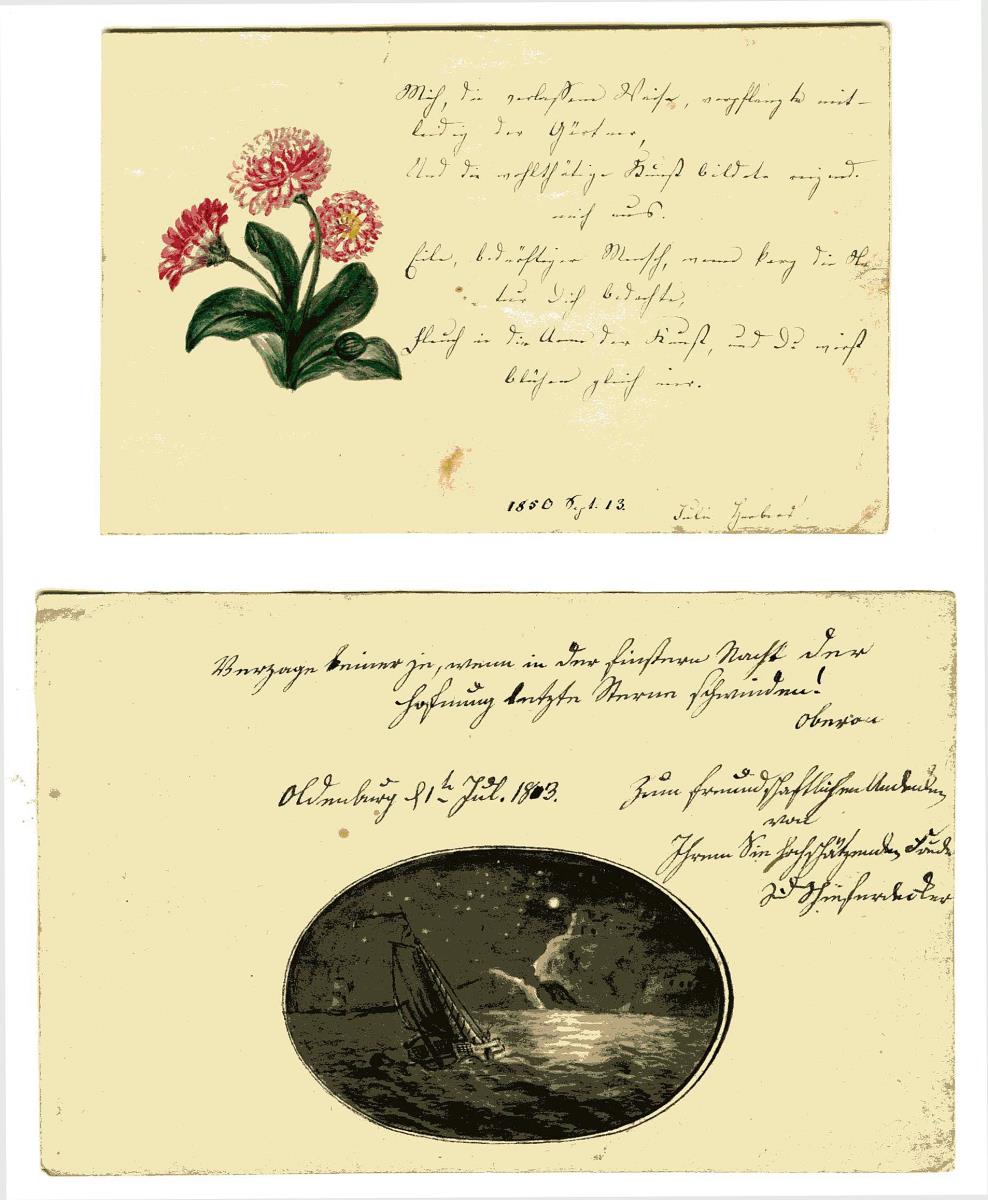 Mich, die verlassene Waise, verpflanzte mit-
leidig der Gärtner,
Und die wohlthätige Kunst bildete reizend
mich aus.
Eile, bedürftiger Mensch, wenn karg die Na-
tur Dich bedachte,
Fleuch in die Arme der Kunst, und Du wirst
blühen gleich mir.
1850 Sept. 13.
Julie
Verzage keiner je, wenn in der finstern Nacht der
Hofnung letzte Sterne schwinden!
Oberon
Oldenburg d 1te Jul. 1803.
Zum freundschaftlichen Andenken
von
Ihrem Sie hochschätzenden
Schieferdecker